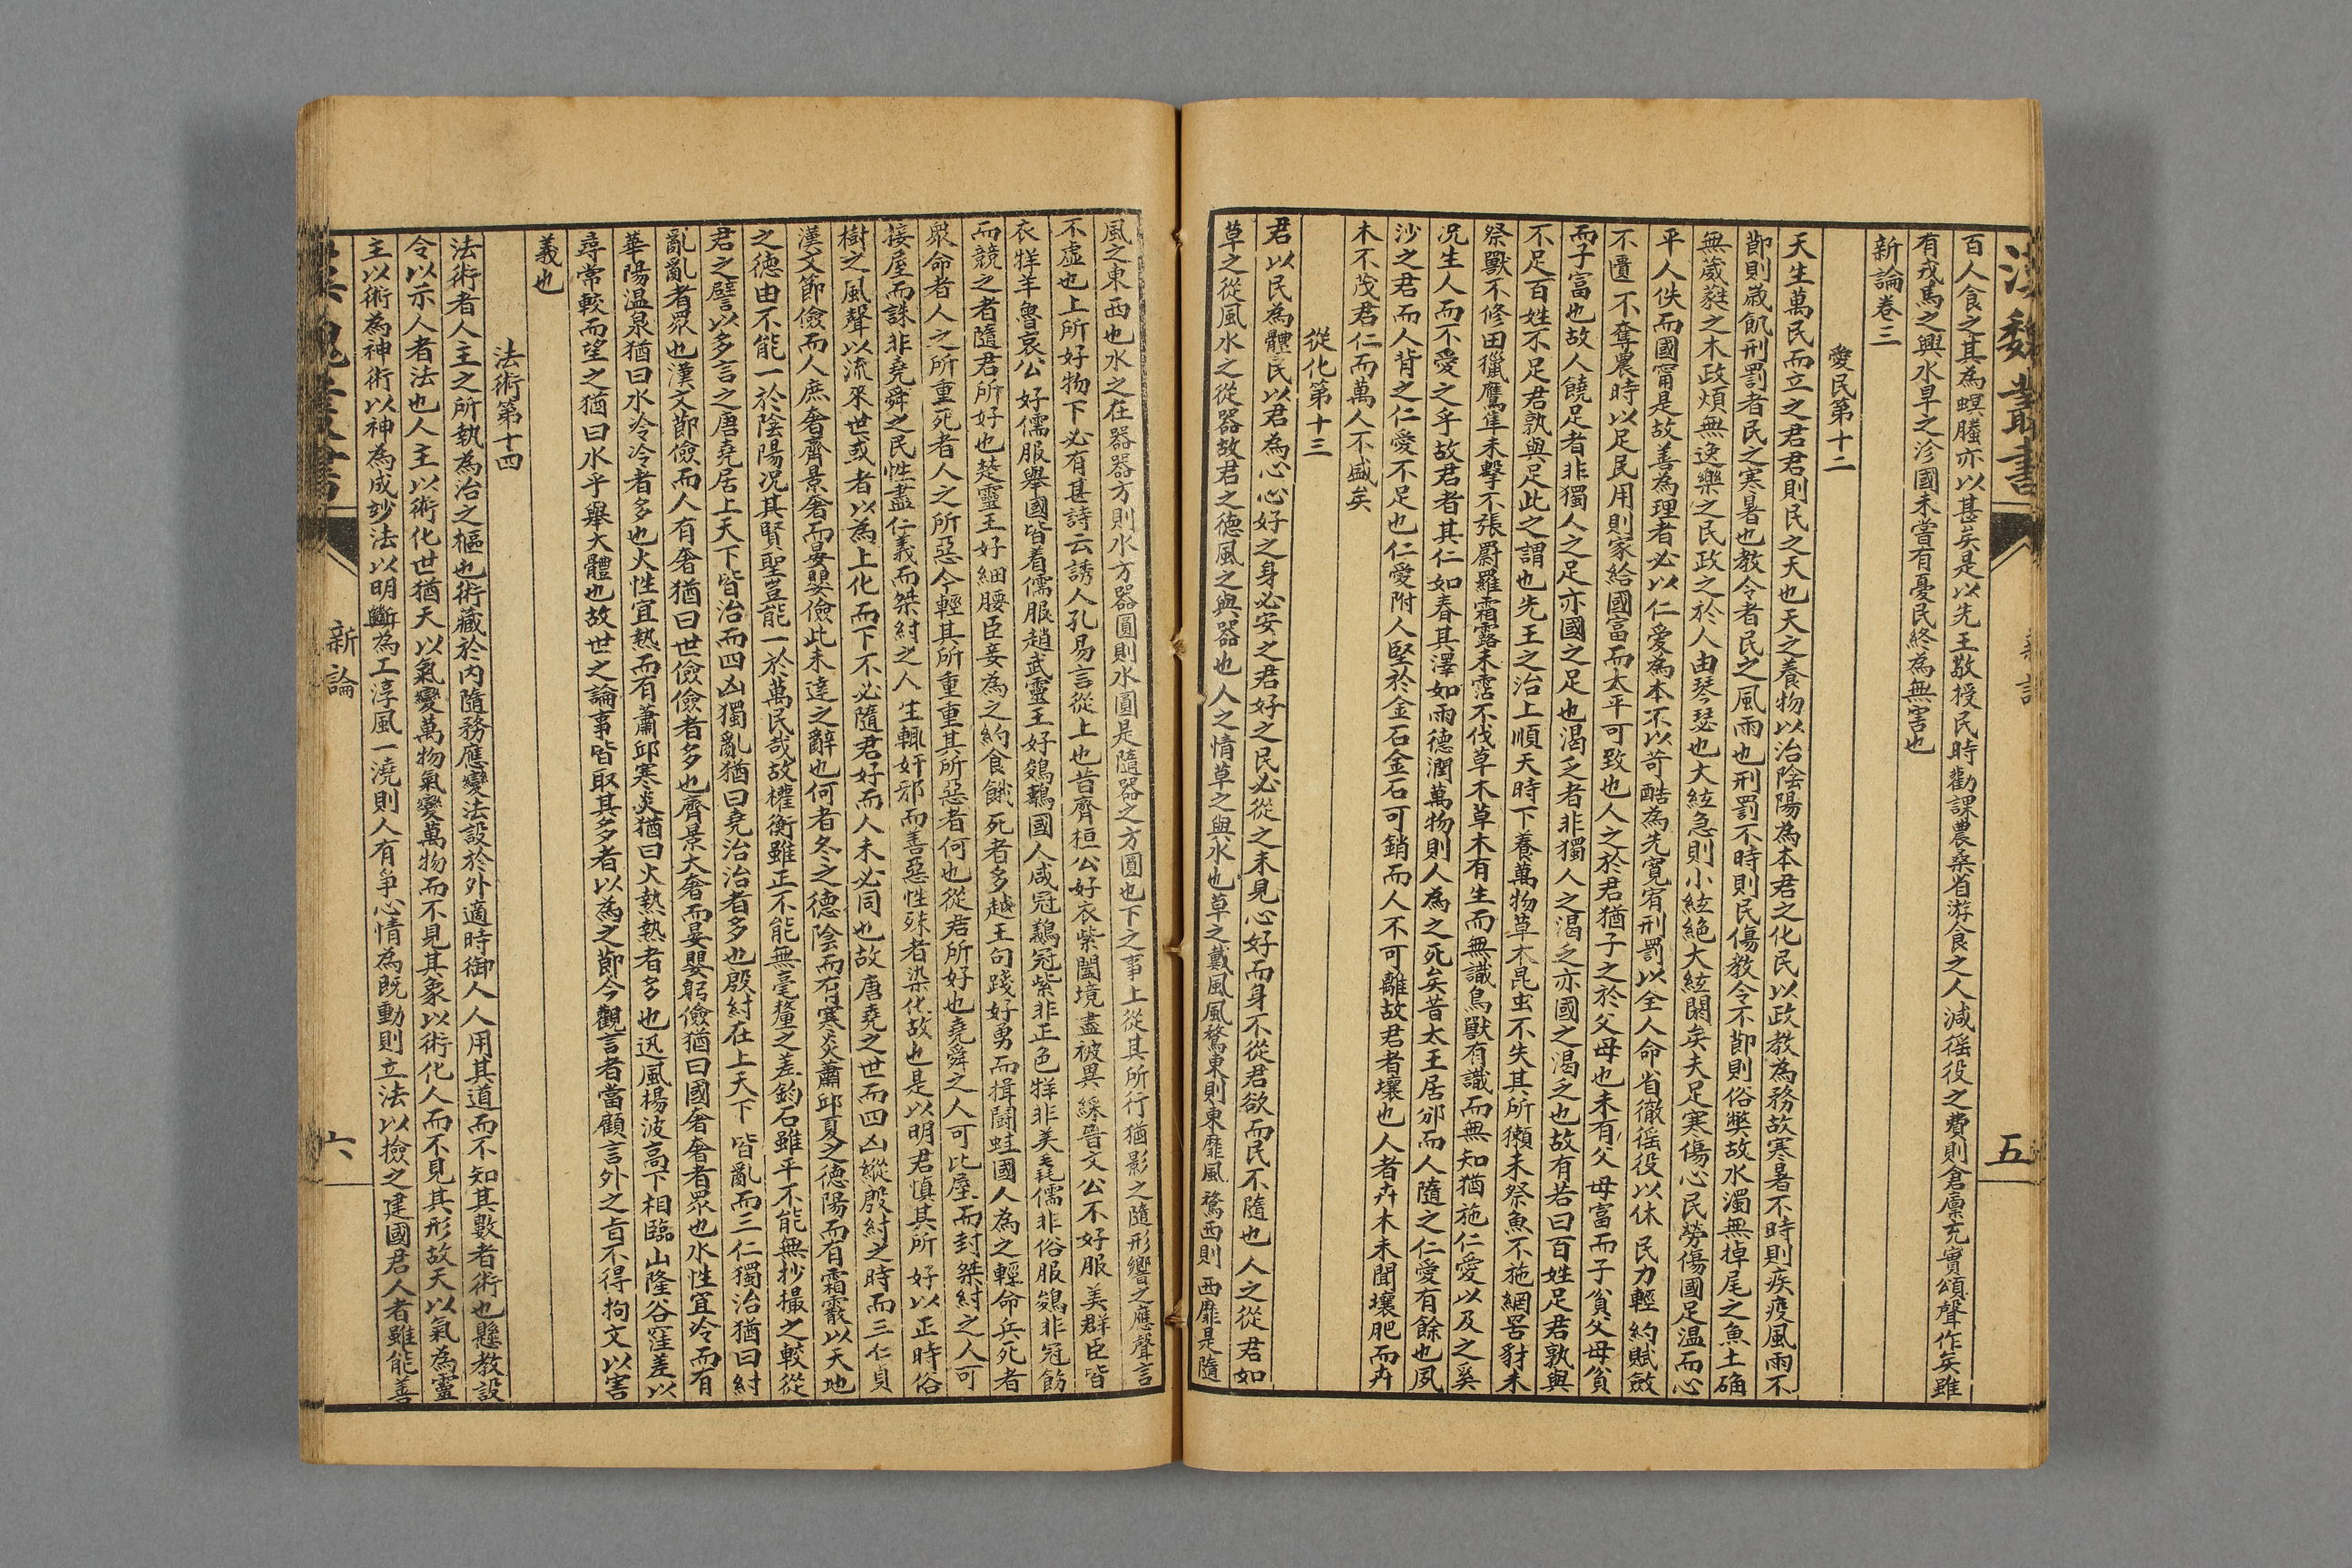 漢魏叢書
新論
五
百人食之其為螟螣亦以甚矣是以先王敬授民時勸課農桑省游食之人減徭役之費則倉廩充實頌聲作矣雖
有戎馬之興水旱之沴國未嘗有憂民終為無害也
新論卷三
愛民第十二
天生萬民而立之君君則民之天也天之養物以治陰陽為本君之化民以政教為務故寒暑不時則疾疫風雨不
節則歲飢刑罰者民之寒暑也教令者民之風雨也刑罰不時則民傷教令不節則俗弊故水濁無掉尾之魚土确
無葳蕤之木政煩無逸樂之民政之於人由琴瑟也大絃急則小絃絕大絃闕矣夫足寒傷心民勞傷國足温而心
平人佚而國甯是故善為理者必以仁愛為本不以苛酷為先寬宥刑罰以全人命省徹徭役以休民力輕約賦斂
不匱不奪農時以足民用則家給國富而太平可致也人之於君猶子之於父母也未有父母富而子貧父母貧
而子富也故人饒足者非獨人之足亦國之足也渴乏者非獨人之渴乏亦國之渴乏也故有若曰百姓足君孰與
不足百姓不足君孰與足此之謂也先王之治上順天時下養萬物草木昆虫不失其所獺未祭魚不施網罟豺未
祭獸不修田獵鷹隼未擊不張罻羅霜露未霑不伐草木草木有生而無識鳥獸有識而無知猶施仁愛以及之奚
况生人而不愛之乎故君者其仁如春其澤如雨德潤萬物則人為之死矣昔太王居邠而人隨之仁愛有餘也夙
沙之君而人背之仁愛不足也仁愛附人堅於金石金石可銷而人不可離故君者壤也人者卉木未聞壤肥而卉
木不茂君仁而萬人不盛矣
從化第十三
君以民為體民以君為心心好之身必安之君好之民必從之未見心好而身不從君欲而民不隨也人之從君如
草之從風水之從器故君之德風之與器也人之情草之與水也草之戴風風騖東則東靡風騖西則西靡是隨
風之東西也水之在器器方則水方器圓則水圓是隨器之方圓也下之事上從其所行猶影之隨形響之應聲言
不虛也上所好物下必有甚詩云誘人孔易言從上也昔齊桓公好衣紫闔境盡被異綵晉文公不好服美群臣皆
衣牂羊魯哀公好儒服舉國皆着儒服趙武靈王好鵕鸃國人咸冠鷄冠紫非正色牂非美毳儒非俗服鵕非冠飾
而競之者隨君所好也楚靈王好細腰臣妾為之約食餓死者多越王句踐好勇而揖鬪蛙國人為之輕命兵死者
衆命者人之所重死者人之所惡今輕其所重重其所惡者何也從君所好也堯舜之人可比屋而封桀紂之人可
接屋而誅非堯舜之民性盡仁義而桀紂之人生輒奸邪而善惡性殊者染化故也是以明君慎其所好以正時俗
樹之風聲以流來世或者以為上化而下不必隨君好而人未必同也故唐堯之世而四凶縱殷紂之時而三仁貞
漢文節儉而人庶奢齊景奢而晏嬰儉此未達之辭也何者冬之德陰而有寒炎蕭邱夏之德陽而有霜霰以天地
之德由不能一於陰陽况其賢聖豈能一於萬民哉故權衡雖正不能無毫釐之差鈞石雖平不能無抄撮之較從
君之譬以多言之唐堯居上天下皆治而四凶獨亂猶曰堯治治者多也殷紂在上天下皆亂而三仁獨治猶曰紂
亂亂者衆也漢文節儉而人有奢猶曰世儉儉者多也齊景大奢而晏嬰躬儉猶曰國奢奢者衆也水性宜冷而有
華陽温泉猶曰水冷冷者多也火性宜熱而有蕭邱寒炎猶曰火熱熱者多也迅風楊波高下相臨山隆谷窪差以
尋常較而望之猶曰水乎舉大體也故世之論事皆取其多者以為之節今觀言者當顧言外之旨不得拘文以害
義也
法術第十四
法術者人主之所執為治之樞也術藏於內隨務應變法設於外適時御人人用其道而不知其數者術也懸教設
令以示人者法也人主以術化世猶天以氣變萬物氣變萬物而不見其象以術化人而不見其形故天以氣為靈
主以術為神術以神為成妙法以明斷為工淳風一澆則人有爭心情為既動則立法以撿之建國君人者雖能善
新論
六